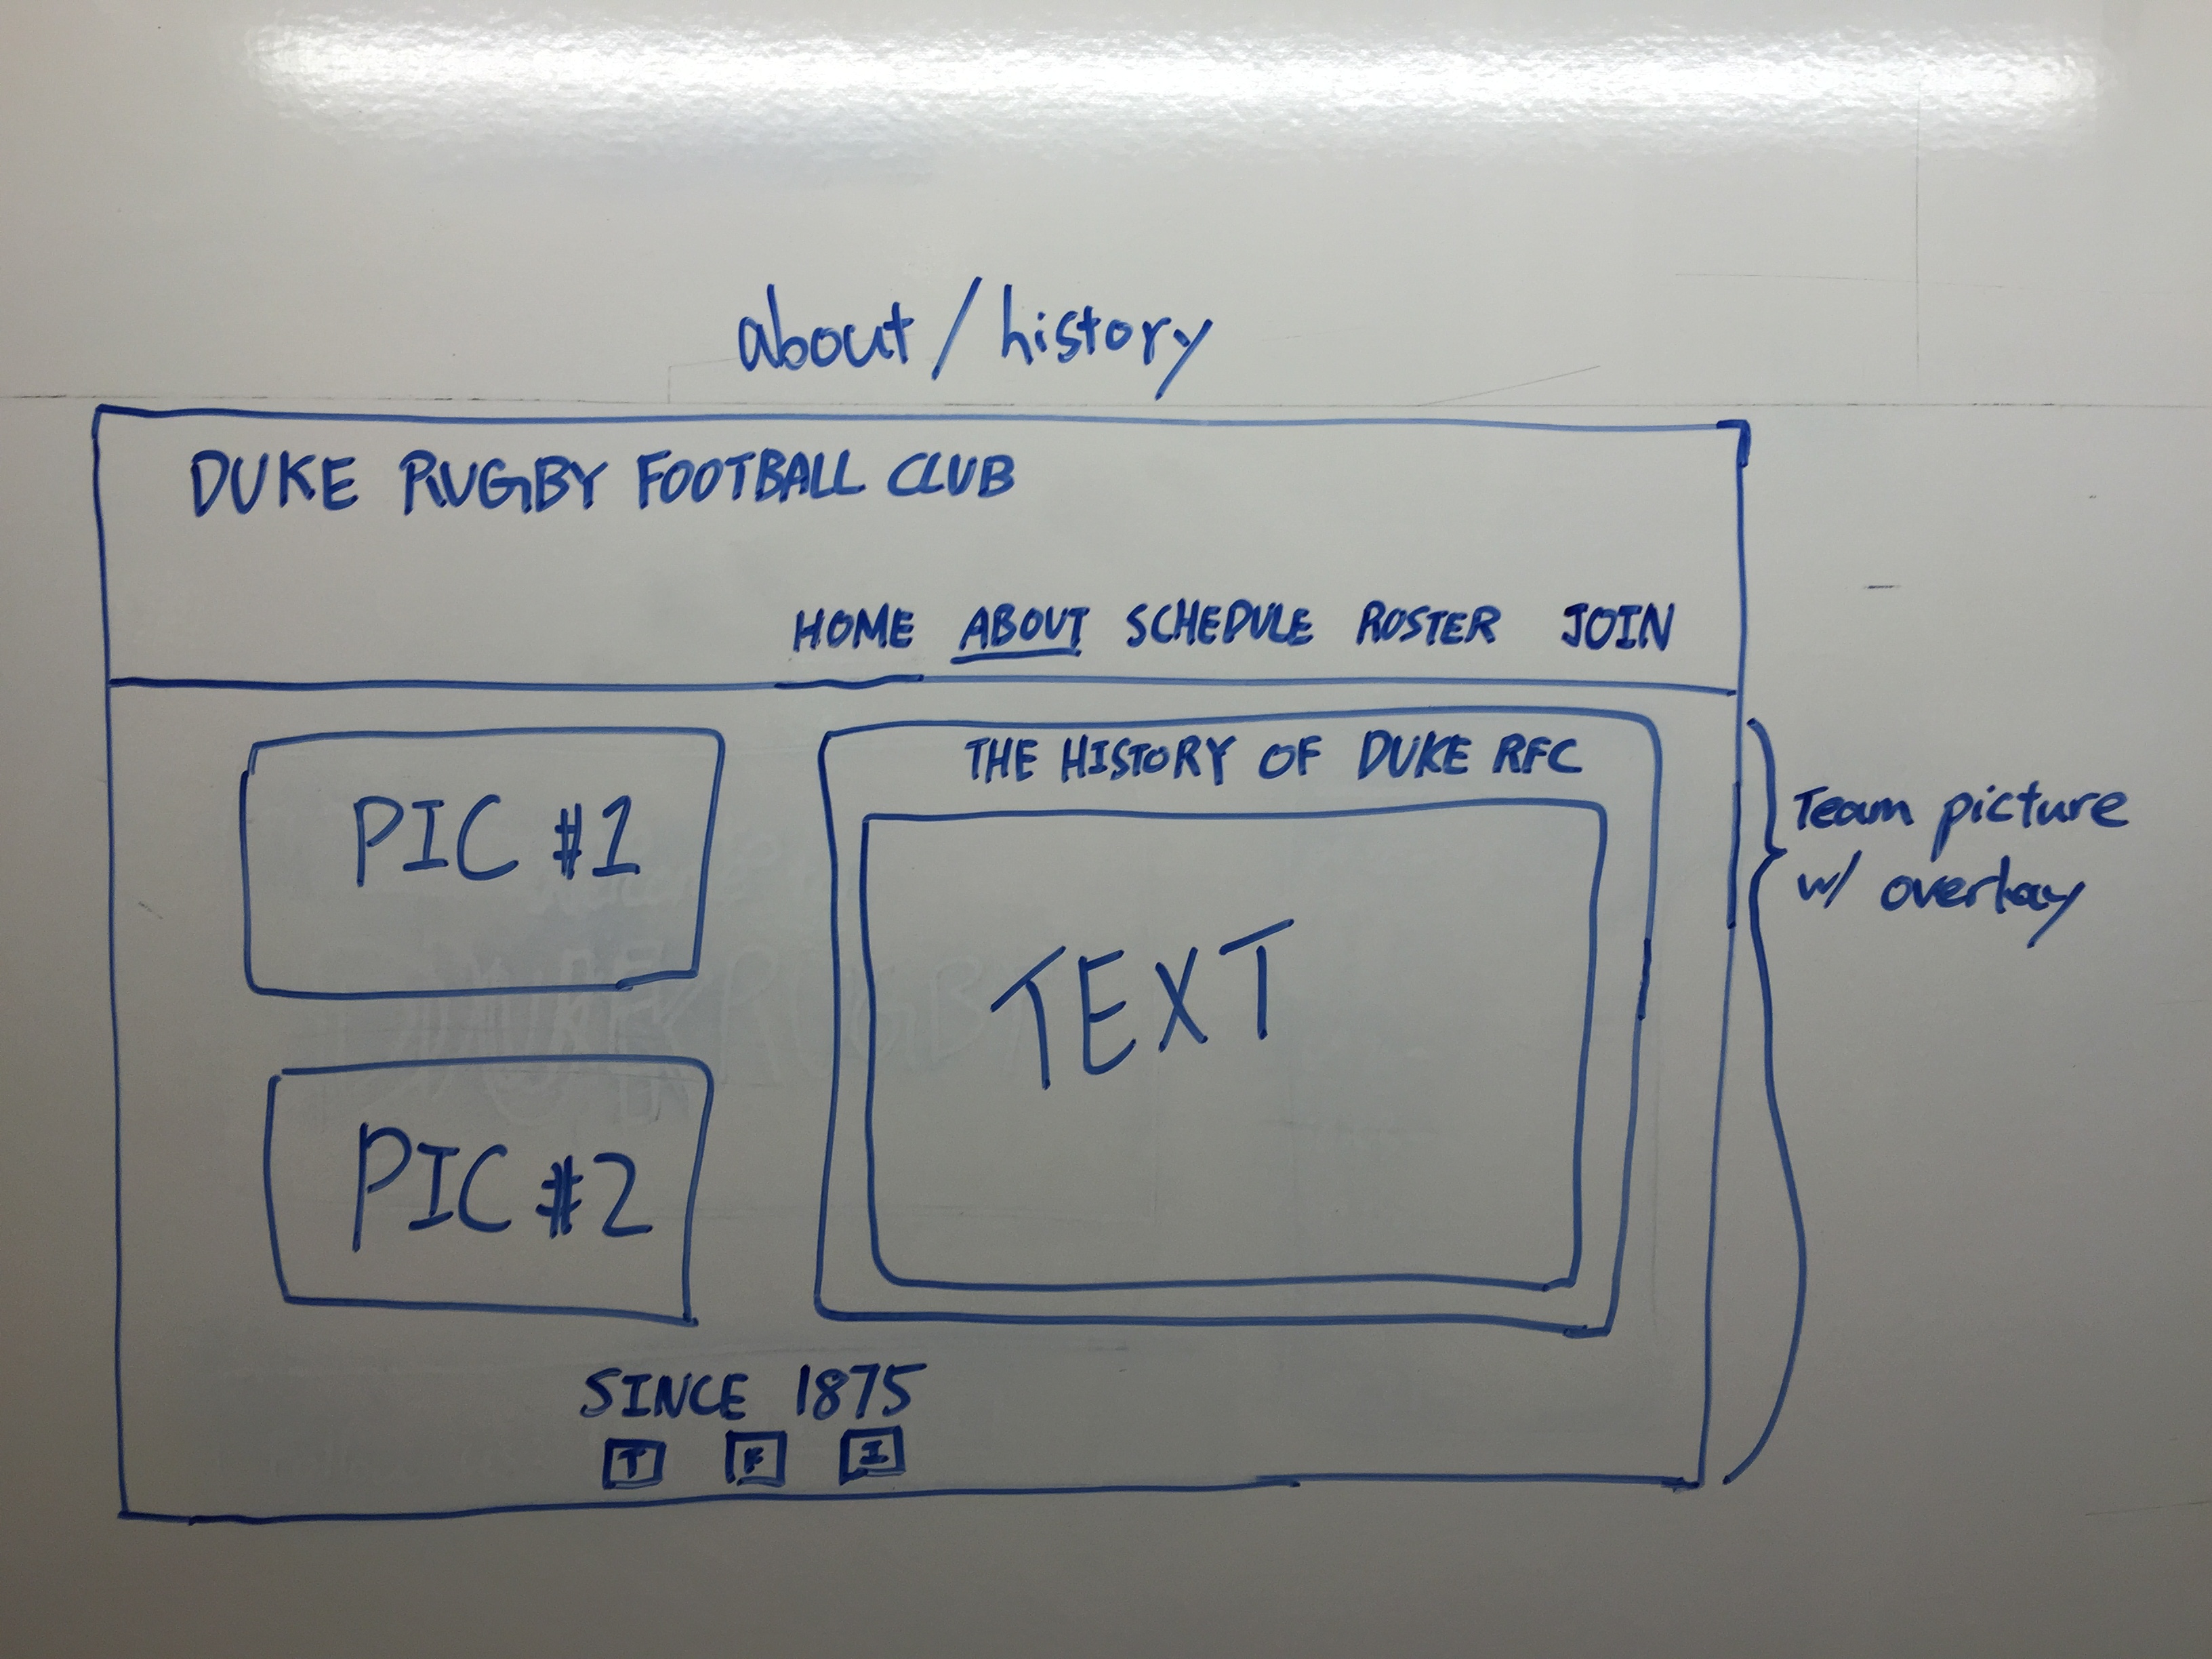 about / history
DUKE RUGBY FOOTBALL CLUB
HOME ABOUT SCHEDULE ROSTER JOIN
PIC #1
PIC #2
THE HISTORY OF DUKE RFC
TEXT
Team picture
w/ overlay
SINCE 1875
T F I